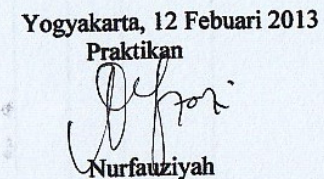 Yogyakarta, 12 Febuari 2013
Praktikan
Nurfauziyah